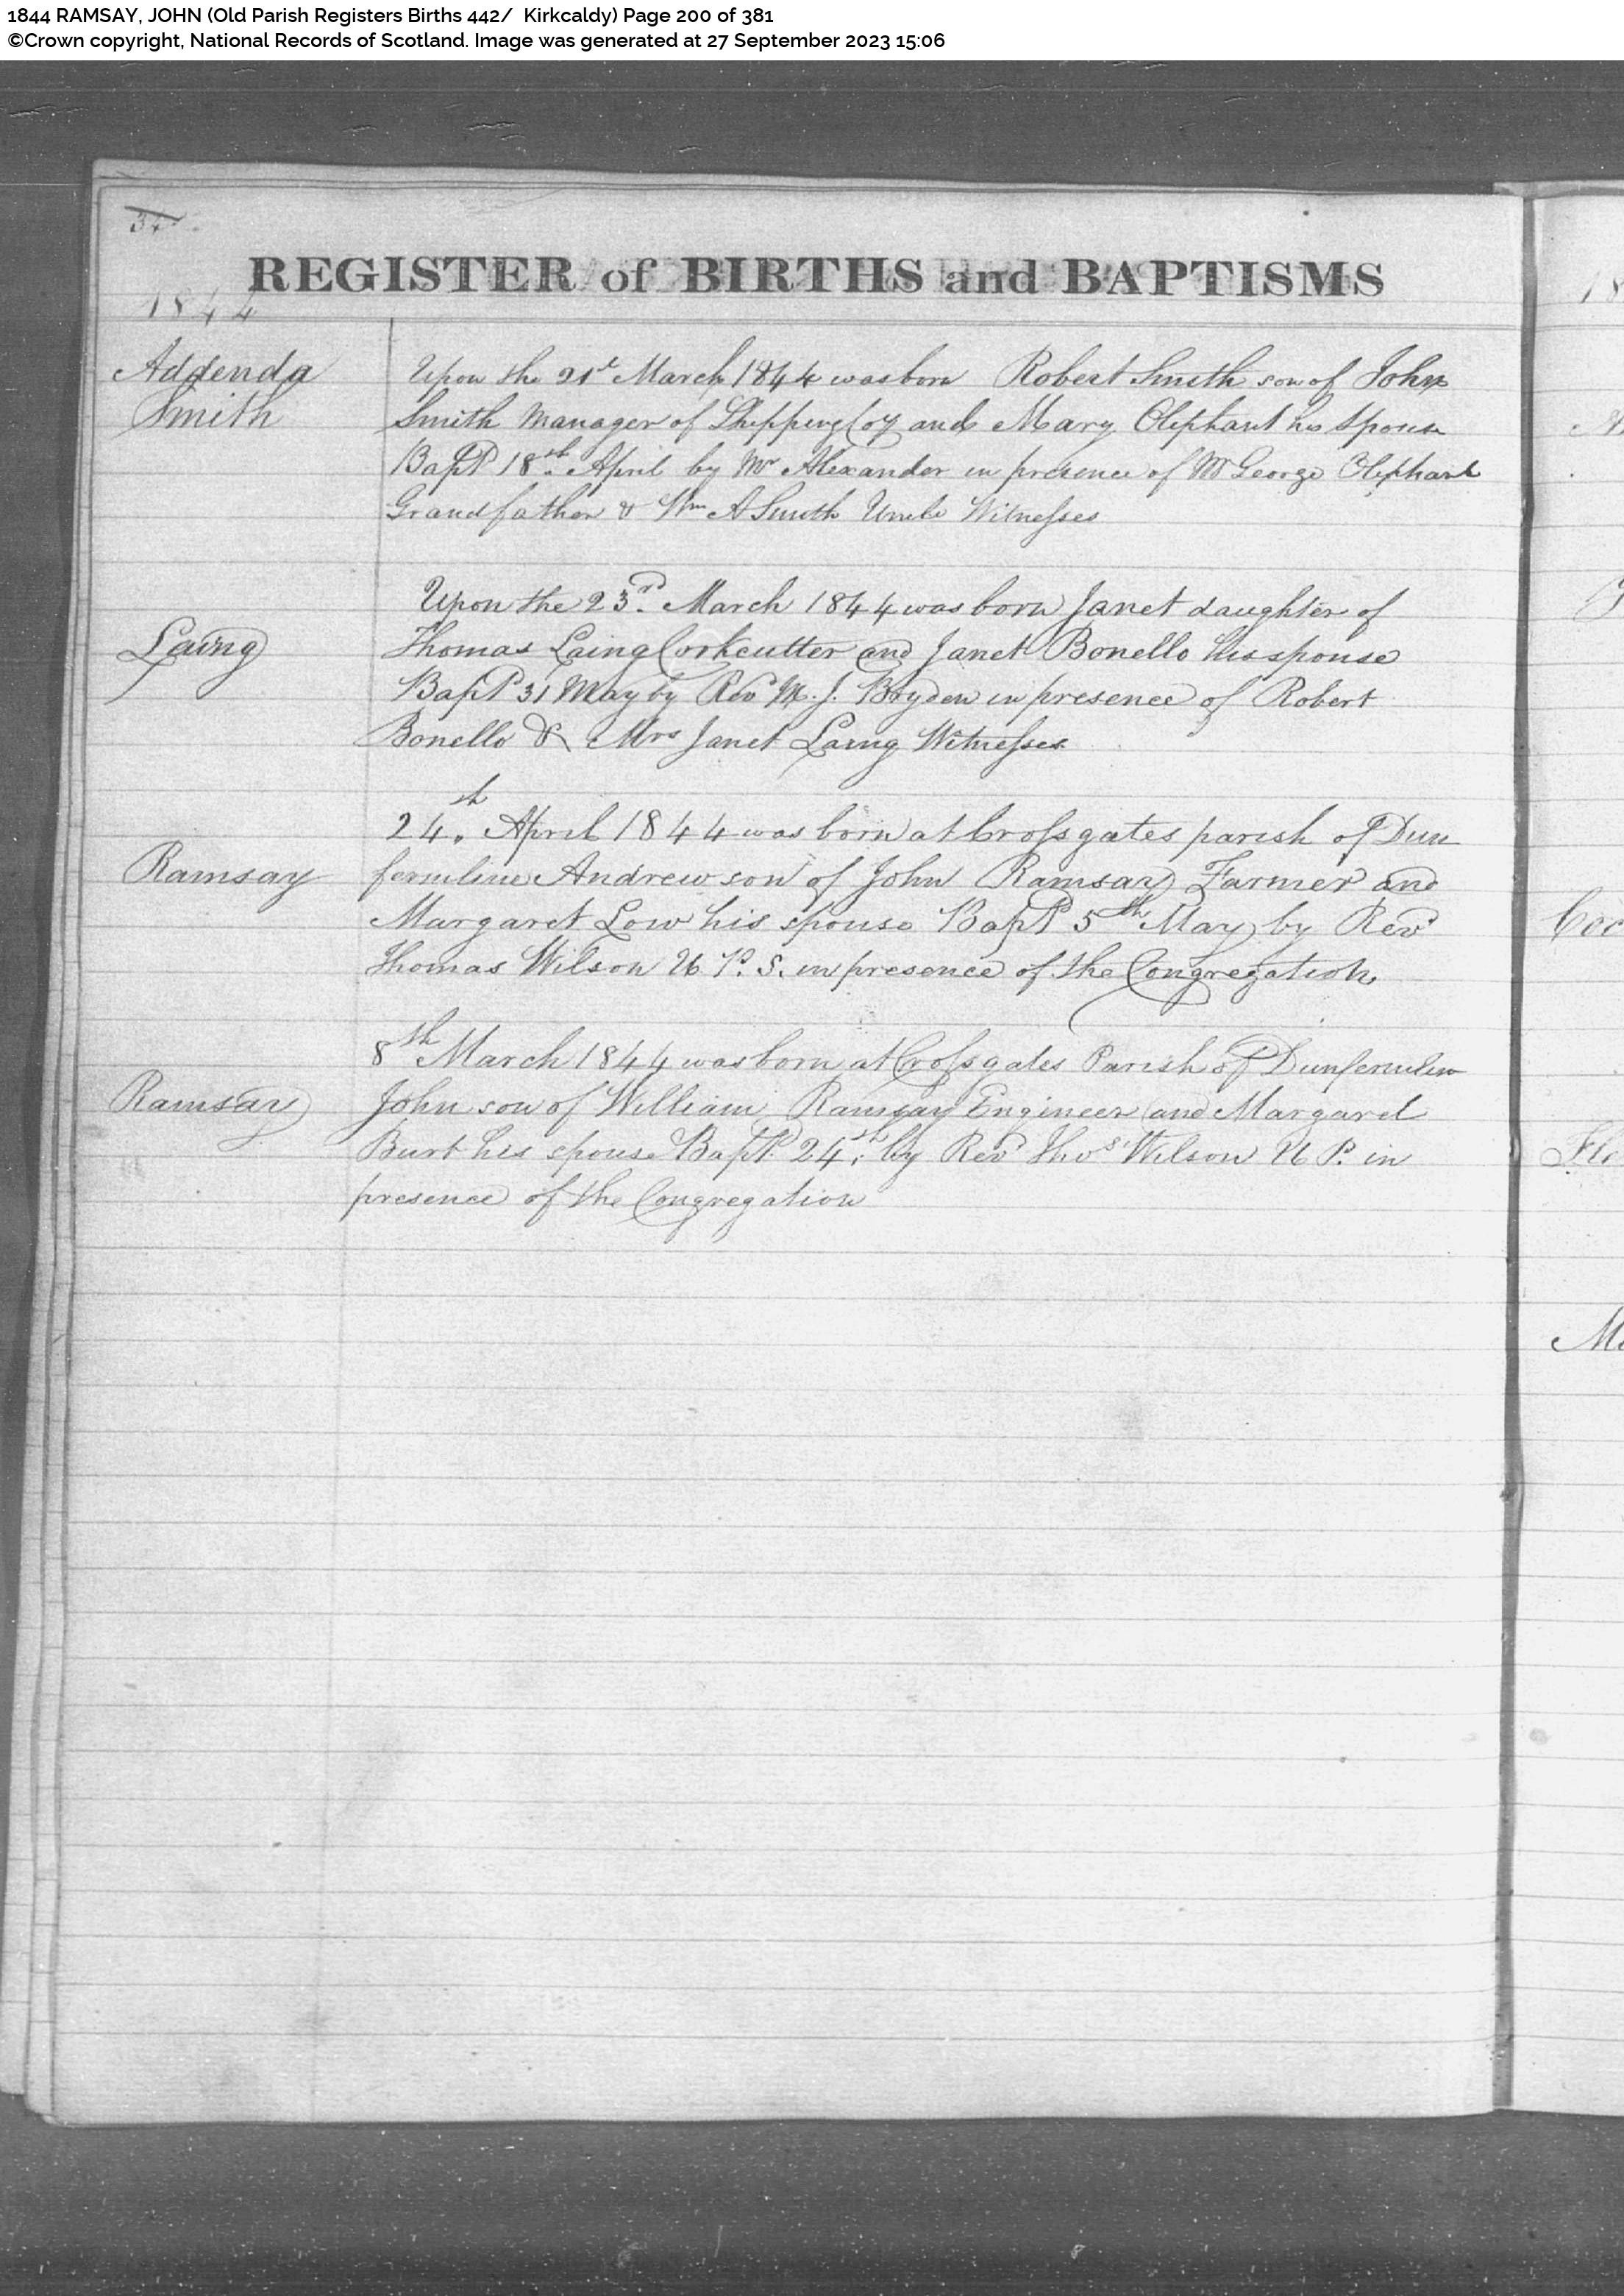 1844 RAMSAY, JOHN (Old Parish Registers Births 442/ Kirkcaldy) Page 200 of 381
©Crown copyright, National Records of Scotland. Image was generated at 27 September 2023 15:06
REGISTER of BIRTHS and BAPTISMS
1844
Addenda
Smith
Upon the 21st March 1844 was born Robert Smith son of John
Smith Manager of Shipping Coy and Mary Oliphant his spouse
Bapd 18th April by Mr Alexander in presence of Mr George Oliphant
Grandfather & Wm A Smith Uncle Witnesses
Laing
Upon the 23rd March 1844 was born Janet daughter of
Thomas Laing Corkcutter and Janet Bonello his spouse
Bapd 31 May by Revd M. J. Bryden in presence of Robert
Bonello & Mrs Janet Laing Witnesses
Ramsay
24th April 1844 was born at Crossgates parish of Dun
fermline Andrew son of John Ramsay Farmer and
Margaret Low his spouse Bapd 5th May by Revd
Thomas Wilson U. P. S. in presence of the Congregation
Ramsay
8th March 1844 was born at Crossgates Parish of Dunfermlin
John son of William Ramsay Engineer and Margaret
Burt his spouse Bapd 24th by Revd Thos Wilson U P. in
presence of the Congregation